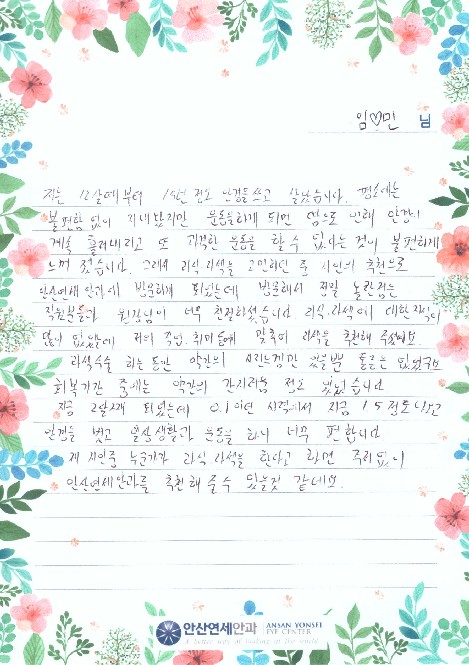 임♡민 님
저는 12살때부터 15년 정도 안경을 쓰고 살았습니다. 평소에는
불편함 없이 지내왔지만 운동을하게 되면 땀으로 인해 안경이
계속 흘러내리고 또 과격한 운동을 할 수 없다는 것이 불편하게
느껴 졌습니다. 그래서 라식 라섹을 고민하던 중 지인의 추천으로
안산연세안과에 방문하게 되었는데 방문해서 정말 놀란점는
직원분들과 원장님이 너무 친절하셨습니다 라식.라섹에 대한 지식이
많이 없었는데 저의 직업, 취미 등에 맞추어 라섹을 추천해 주셨어요
라섹수술 하는 동안 약간의 시린느낌만 있을뿐 통증은 없었구요
회복기간 중에는 약간의 간지러움 정도 있었습니다
지금 2달째 되었는데 0.1이던 시력에서 지금 1.5정도 나오고
안경을 벗고 일상생활과 운동을 하니 너무 편합니다
제 지인중 누군가가 라식 라섹을 한다고 하면 주저없이
안산연세안과를 추천해 줄수 있을것 같네요.
안산연세안과 ANSAN YONSEI
EYE CENTER
A better way of looking at the world